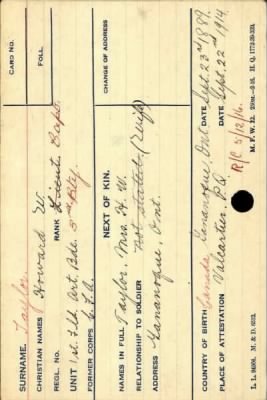 CARD NO.
FOLL.
SURNAME. Taylor.
CHRISTIAN NAMES Howard W.
REGL. NO. RANK Lieut. Capt.
UNIT 1st. Fld. Art. Bde. 3rd Bty.
FORMER CORPS C.F.A.
NEXT OF KIN. CHANGE OF ADDRESS
NAMES IN FULL Taylor, Mrs. H. W.
RELATIONSHIP TO SOLDIER Not stated. (Wife)
ADDRESS Gananoque, Ont.
COUNTRY OF BIRTH Canada Gananoque, Ont DATE Sept. 23rd 1889.
PLACE OF ATTESTATION Valcartier, P.Q. DATE Sept. 22nd 1914.
R/C 5/12/16.
M. F. W. 22.
H. Q. 1772-39-339.